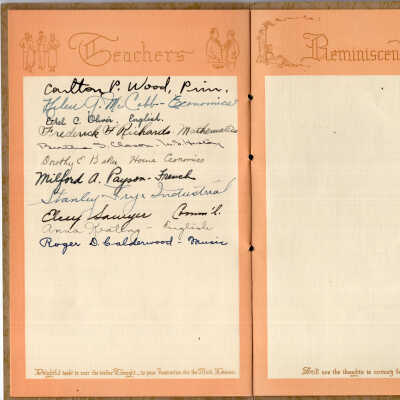 Teachers
Carlton P. Wood, Prin.
Helen G. McCobb - Economics
Ethel C. Oliver, English.
Frederick H Richards Mathematics
S. Clason U.S. History
Dorothy E Baker Home Economics
Milford A. Payson - French
Stanley Frye Industrial
Elery Sawyer Comm'l.
Anna Keating - English
Roger D. Calderwood - Music
Delightful task! to rear the tender Thought, to pour Instruction o'er the Mind.
Reminiscen
Still are the thoughts to memory